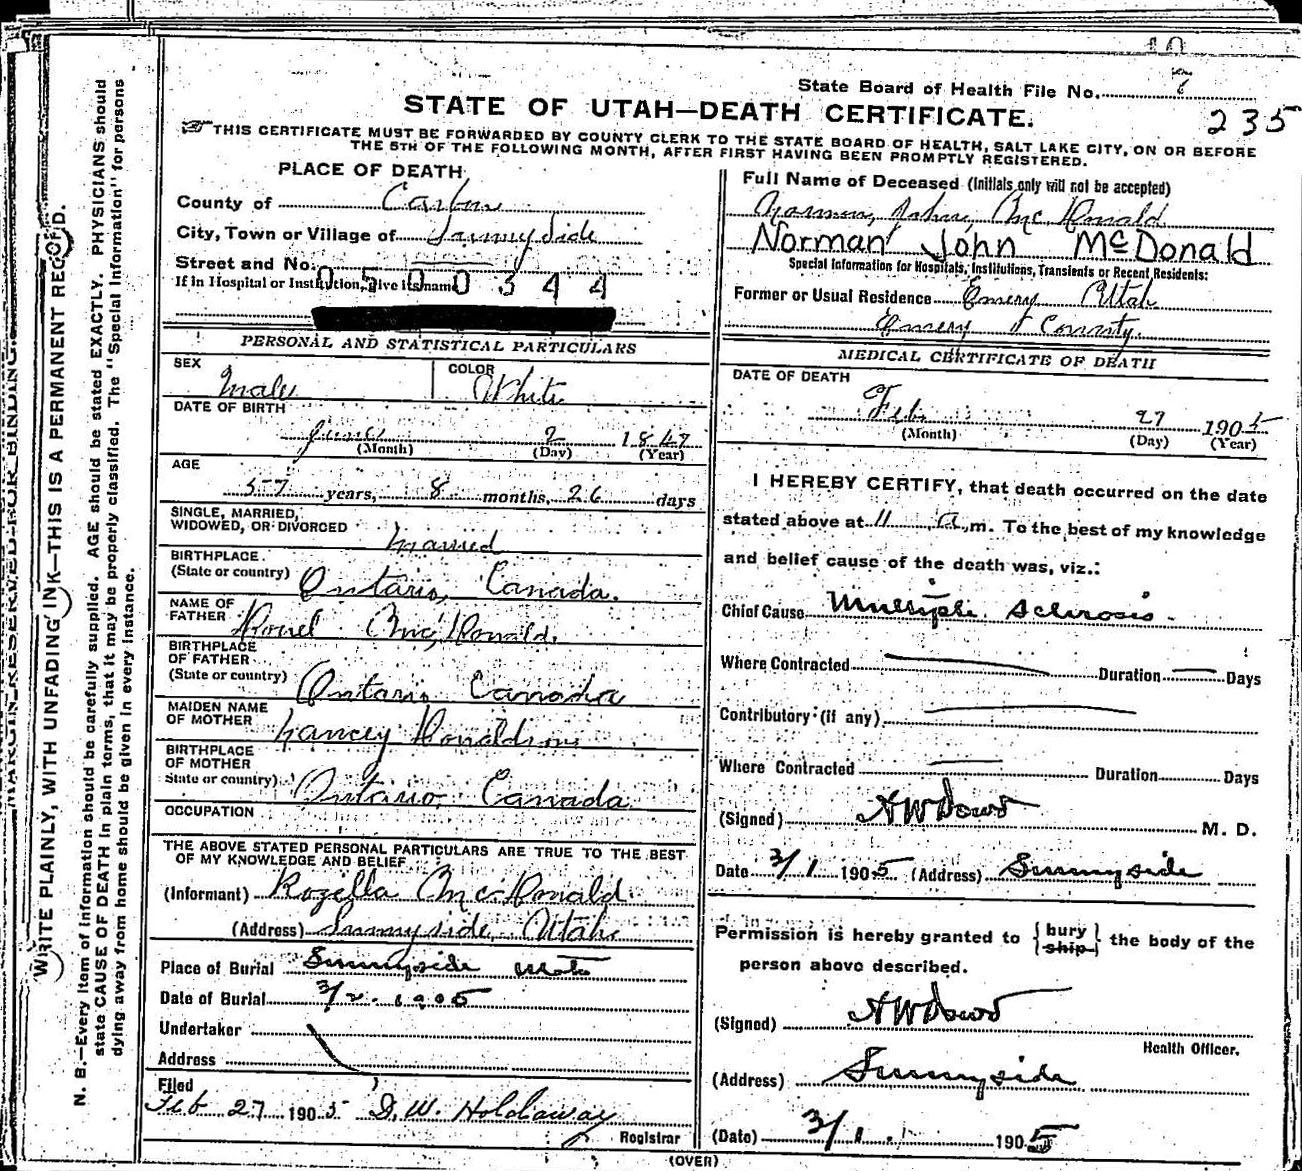 State Board of Health File No. 7
235
STATE OF UTAH—DEATH CERTIFICATE.
THIS CERTIFICATE MUST BE FORWARDED BY COUNTY CLERK TO THE STATE BOARD OF HEALTH, SALT LAKE CITY, ON OR BEFORE
THE 5TH OF THE FOLLOWING MONTH, AFTER FIRST HAVING BEEN PROMPTLY REGISTERED.
PLACE OF DEATH
County of Carbon
City, Town or Village of Sunnyside
Street and No.
If in Hospital or Institution, give its name
0500344
PERSONAL AND STATISTICAL PARTICULARS
SEX Male COLOR White
DATE OF BIRTH
June 2 1847
(Month) (Day) (Year)
AGE
57 years, 8 months, 26 days
SINGLE, MARRIED,
WIDOWED, OR DIVORCED Married
BIRTHPLACE
(State or country) Ontario, Canada.
NAME OF
FATHER McDonald.
BIRTHPLACE
OF FATHER
(State or country) Ontario Canada
MAIDEN NAME
OF MOTHER Donaldson
BIRTHPLACE
OF MOTHER
State or country) Ontario, Canada
OCCUPATION
THE ABOVE STATED PERSONAL PARTICULARS ARE TRUE TO THE BEST
OF MY KNOWLEDGE AND BELIEF
(Informant) Rozilla McDonald
(Address) Sunnyside, Utah
Place of Burial Sunnyside Utah
Date of Burial 3/2. 1905
Undertaker
Address
Filed
Feb 27 1905 D. W. Holdaway
Registrar
(OVER)
Full Name of Deceased (Initials only will not be accepted)
Norman John McDonald
Norman John McDonald
Special Information for Hospitals, Institutions, Transients or Recent Residents:
Former or Usual Residence Emery Utah
Emery County.
MEDICAL CERTIFICATE OF DEATH
DATE OF DEATH
Feb 27 1905
(Month) (Day) (Year)
I HEREBY CERTIFY, that death occurred on the date
stated above at 11 a.m. To the best of my knowledge
and belief cause of the death was, viz.:
Chief Cause Multiple Sclerosis
Where Contracted Duration Days
Contributory (if any)
Where Contracted Duration Days
(Signed) A W Dowd M. D.
Date 3/1 1905 (Address) Sunnyside
Permission is hereby granted to { bury ship } the body of the
person above described.
(Signed) A W Dowd
Health Officer.
(Address) Sunnyside
(Date) 3/1 1905
MARGIN RESERVED FOR BINDING.
WRITE PLAINLY, WITH UNFADING INK—THIS IS A PERMANENT RECORD.
N. B.—Every item of information should be carefully supplied. AGE should be stated EXACTLY. PHYSICIANS should
state CAUSE OF DEATH in plain terms, that it may be properly classified. The "Special Information" for persons
dying away from home should be given in every instance.